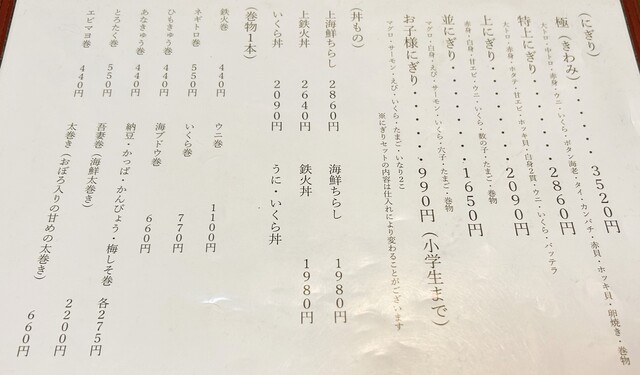 (にぎり)
極(きわみ)・・・・・・3520円
大トロ・中トロ・赤身・ウニ・いくら・ボタン海老・タイ・カンパチ・赤貝・ホッキ貝・卵焼き・巻物
特上にぎり・・・・・・2860円
大トロ・赤身・ホタテ・甘エビ・ホッキ貝・白身2貫・ウニ・いくら・バッテラ
上にぎり・・・・・・2090円
赤身・白身・甘エビ・ウニ・いくら・数の子・たまご・巻物
並にぎり・・・・・・1650円
マグロ・白身・えび・サーモン・いくら・穴子・たまご・巻物
お子様にぎり・・・・990円(小学生まで)
マグロ・サーモン・えび・いくら・たまご・いなり2こ
※にぎりセットの内容は仕入れにより変わることがございます
(丼もの)
上海鮮ちらし 2860円 海鮮ちらし 1980円
上鉄火丼 2640円 鉄火丼 1980円
いくら丼 2090円 うに・いくら丼
(巻物1本)
鉄火巻 440円 ウニ巻 1100円
ネギトロ巻 550円 いくら巻 770円
ひもきゅう巻 440円 海ブドウ巻 660円
あなきゅう巻 440円 納豆・かっぱ・かんぴょう・梅しそ巻 各275円
とろたく巻 550円 吾妻巻(海鮮太巻き) 2200円
エビマヨ巻 440円 太巻き(おぼろ入りの甘めの太巻き) 660円